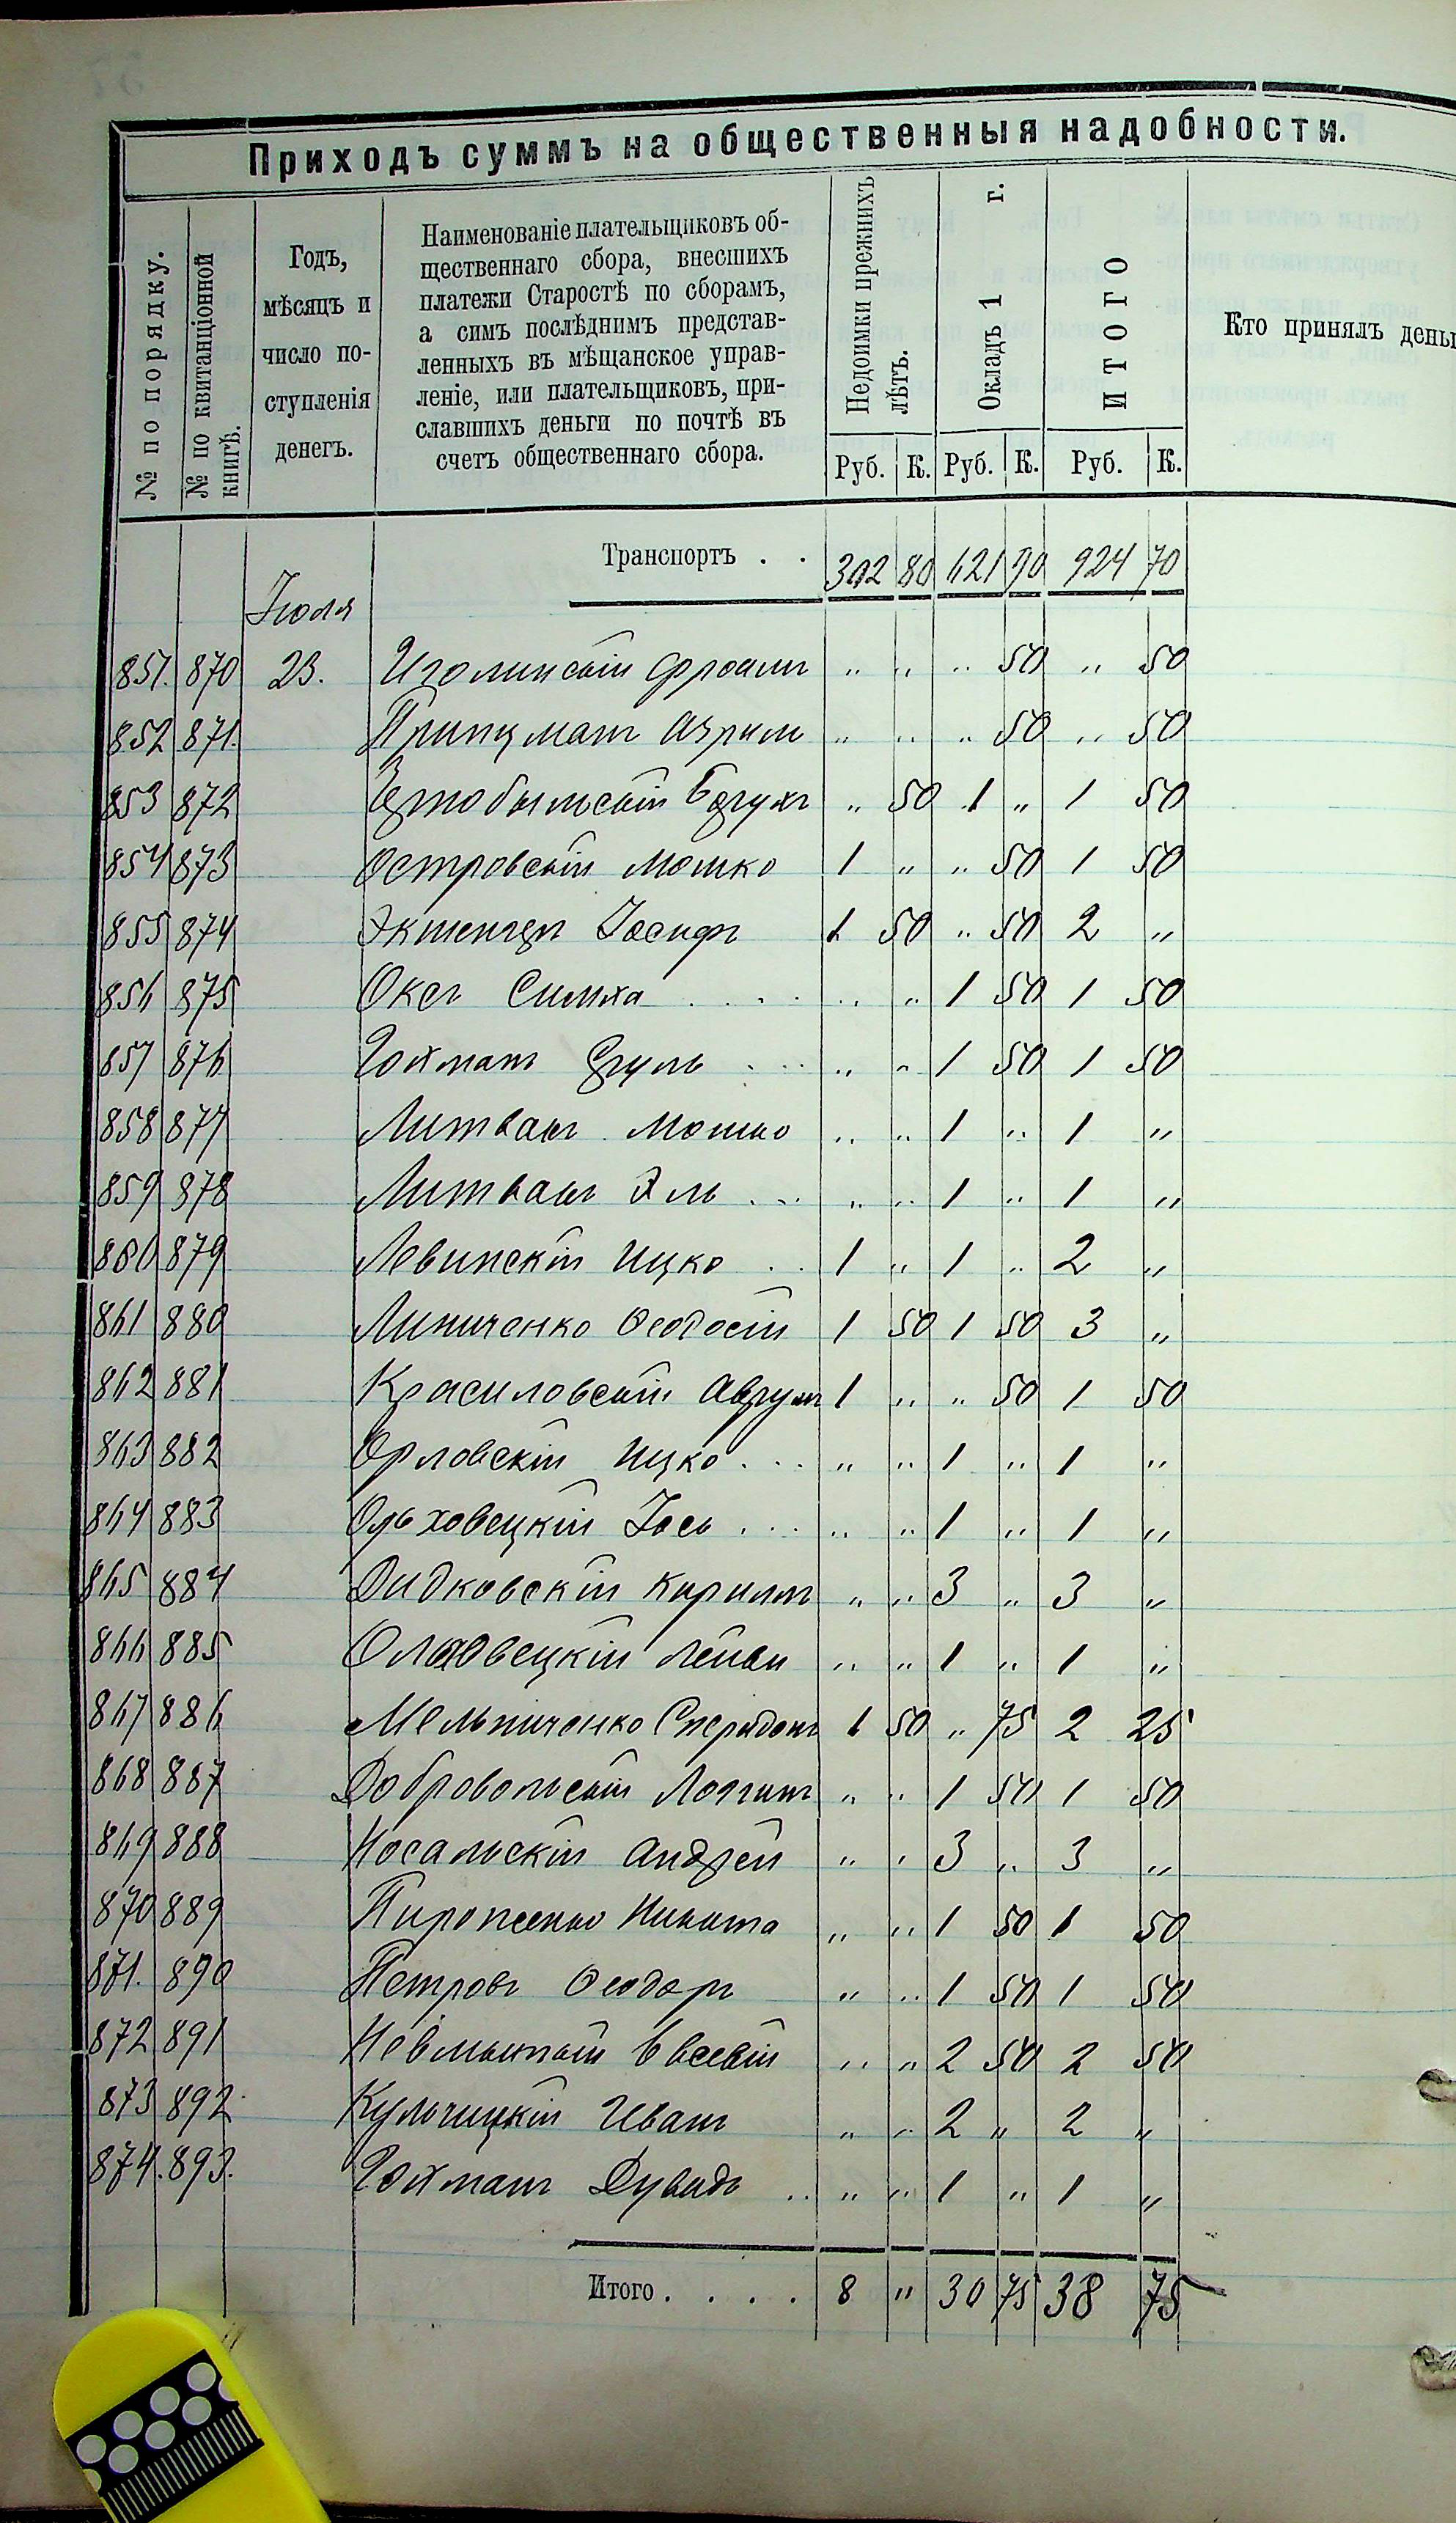 Приходъ суммъ на общественныя надобности.
№ по порядку.
№ по квитанціонной книгѣ.
Годъ, мѣсяцъ и число поступленія денегъ.
Наименованіе плательщиковъ об-
щественнаго сбора, внесшихъ
платежи Старостѣ по сборамъ,
а симъ послѣднимъ представ-
ленныхъ въ мѣщанское управ-
леніе, или плательщиковъ, при-
славшихъ деньги по почтѣ въ
счетъ общественнаго сбора.
Недоимки прежнихъ лѣтъ.
Окладъ 1 г.
ИТОГО
Кто принялъ день
Руб. К. Руб. К. Руб. К.
Транспортъ . . 302 80 621 90 924 70
Іюля
851. 870 23. Изолинскій Фроимъ „ „ „ 50 „ 50
852 871. Принцманъ Азриль „ „ „ 50 „ 50
853 872 Чернобыльскій Борухъ „ 50 1 „ 1 50
854 873 Островскій Мошко 1 „ „ 50 1 50
855 874 Іосифъ 1 50 „ 50 2 „
856 875 Оксъ Симха . . . . „ „ 1 50 1 50
857 876 Гойманъ Сруль . . . „ „ 1 50 1 50
858 877 Литвакъ Мошко „ „ 1 „ 1 „
859 878 Литвакъ Эль . . . „ „ 1 „ 1 „
860 879 Левинскій Ицко . . 1 „ 1 „ 2 „
861 880 Линиченко Ѳеодосій 1 50 1 50 3 „
862 881 Красиловскій Аврумъ 1 „ „ 50 1 50
863 882 Орловскій Ицко . . . „ „ 1 „ 1 „
864 883 Ольховецкій Іось . . . „ „ 1 „ 1 „
865 884 Дидковскій Кирилъ „ „ 3 „ 3 „
866 885 Лейви „ „ 1 „ 1 „
867 886 Мельниченко Спиридонъ 1 50 „ 75 2 25
868 887 Добровольскій Логгинъ „ „ 1 50 1 50
869 888 Носальскій Андрей „ „ 3 „ 3 „
870 889 Пироженко Никита „ „ 1 50 1 50
871. 890 Петровъ Ѳеодоръ „ „ 1 50 1 50
872 891 Евсевій „ „ 2 50 2 50
873 892 Кульчицкій Иванъ „ „ 2 „ 2 „
874. 893. Гойманъ Дувидъ . . „ „ 1 „ 1 „
Итого . . . . 8 „ 30 75 38 75